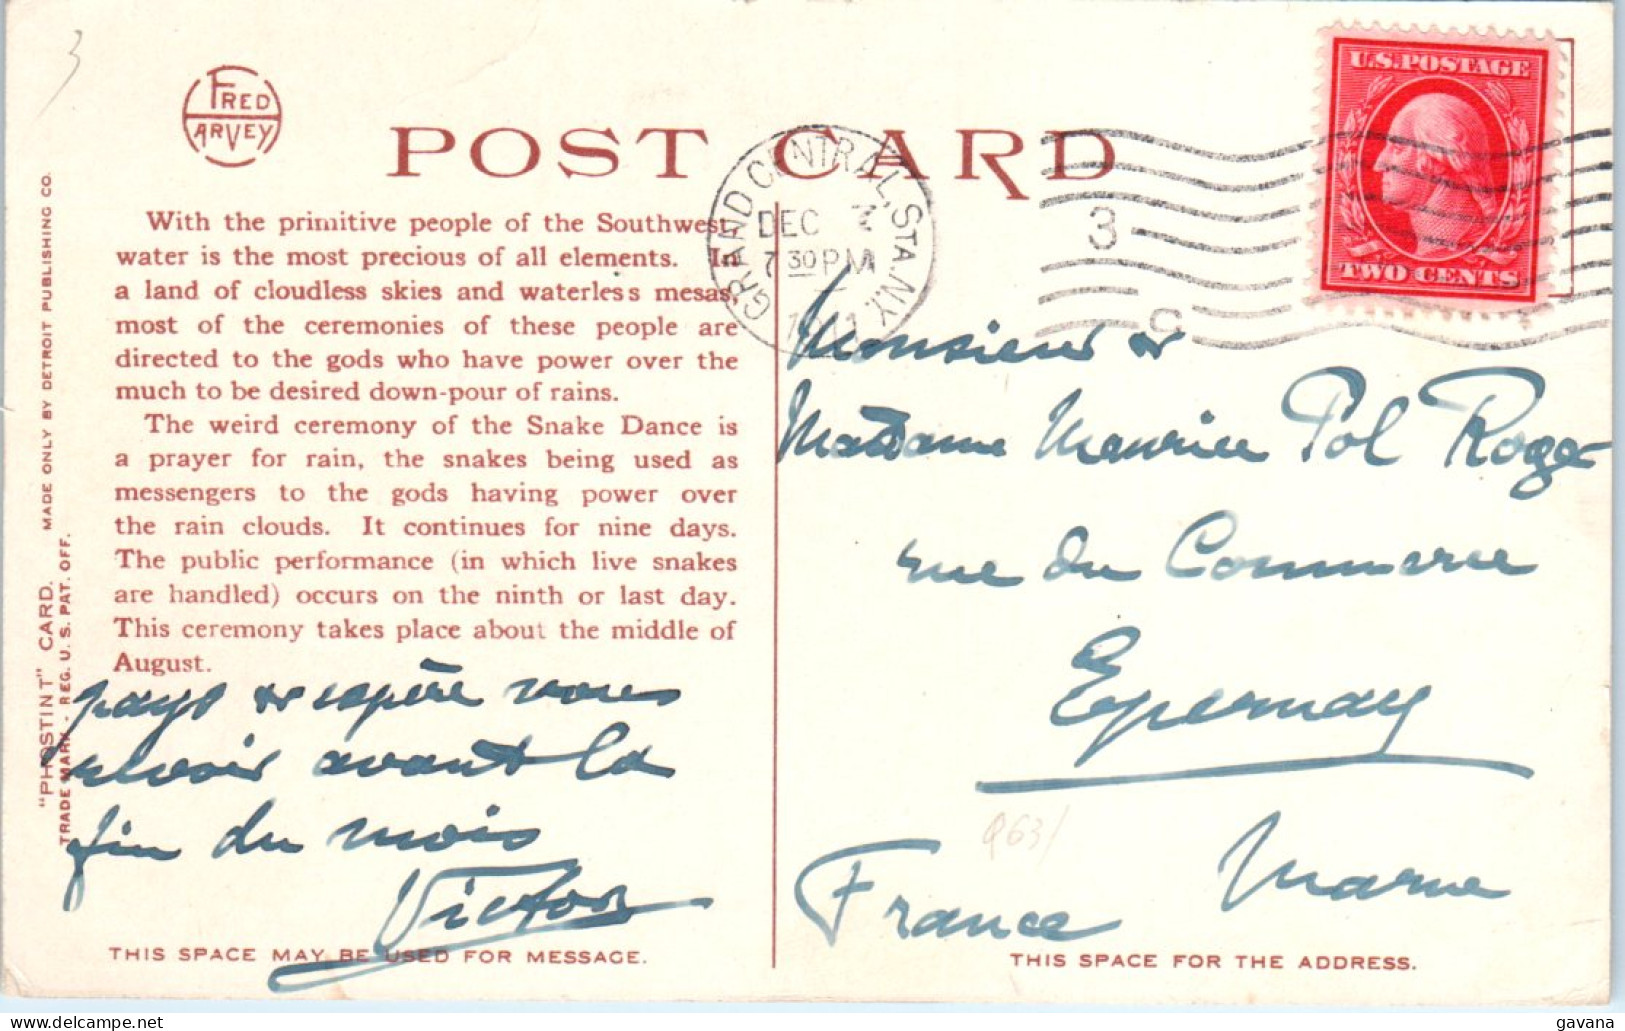 3
FRED
HARVEY
POST CARD
U.S. POSTAGE
TWO CENTS
GRAND CENTRAL, STA. N.Y.
DEC
7 30 PM
1911
3
C
With the primitive people of the Southwest,
water is the most precious of all elements. In
a land of cloudless skies and waterless mesas,
most of the ceremonies of these people are
directed to the gods who have power over the
much to be desired down-pour of rains.
The weird ceremony of the Snake Dance is
a prayer for rain, the snakes being used as
messengers to the gods having power over
the rain clouds. It continues for nine days.
The public performance (in which live snakes
are handled) occurs on the ninth or last day.
This ceremony takes place about the middle of
August.
pays & espère vous
revoir avant la
fin du mois
Victor
THIS SPACE MAY BE USED FOR MESSAGE.
"PHOSTINT" CARD. MADE ONLY BY DETROIT PUBLISHING CO.
TRADE MARK - REG. U. S. PAT. OFF.
Monsieur &
Madame Maurice Pol Roger
rue du Commerce
Epernay
Marne
France
THIS SPACE FOR THE ADDRESS.
gavana